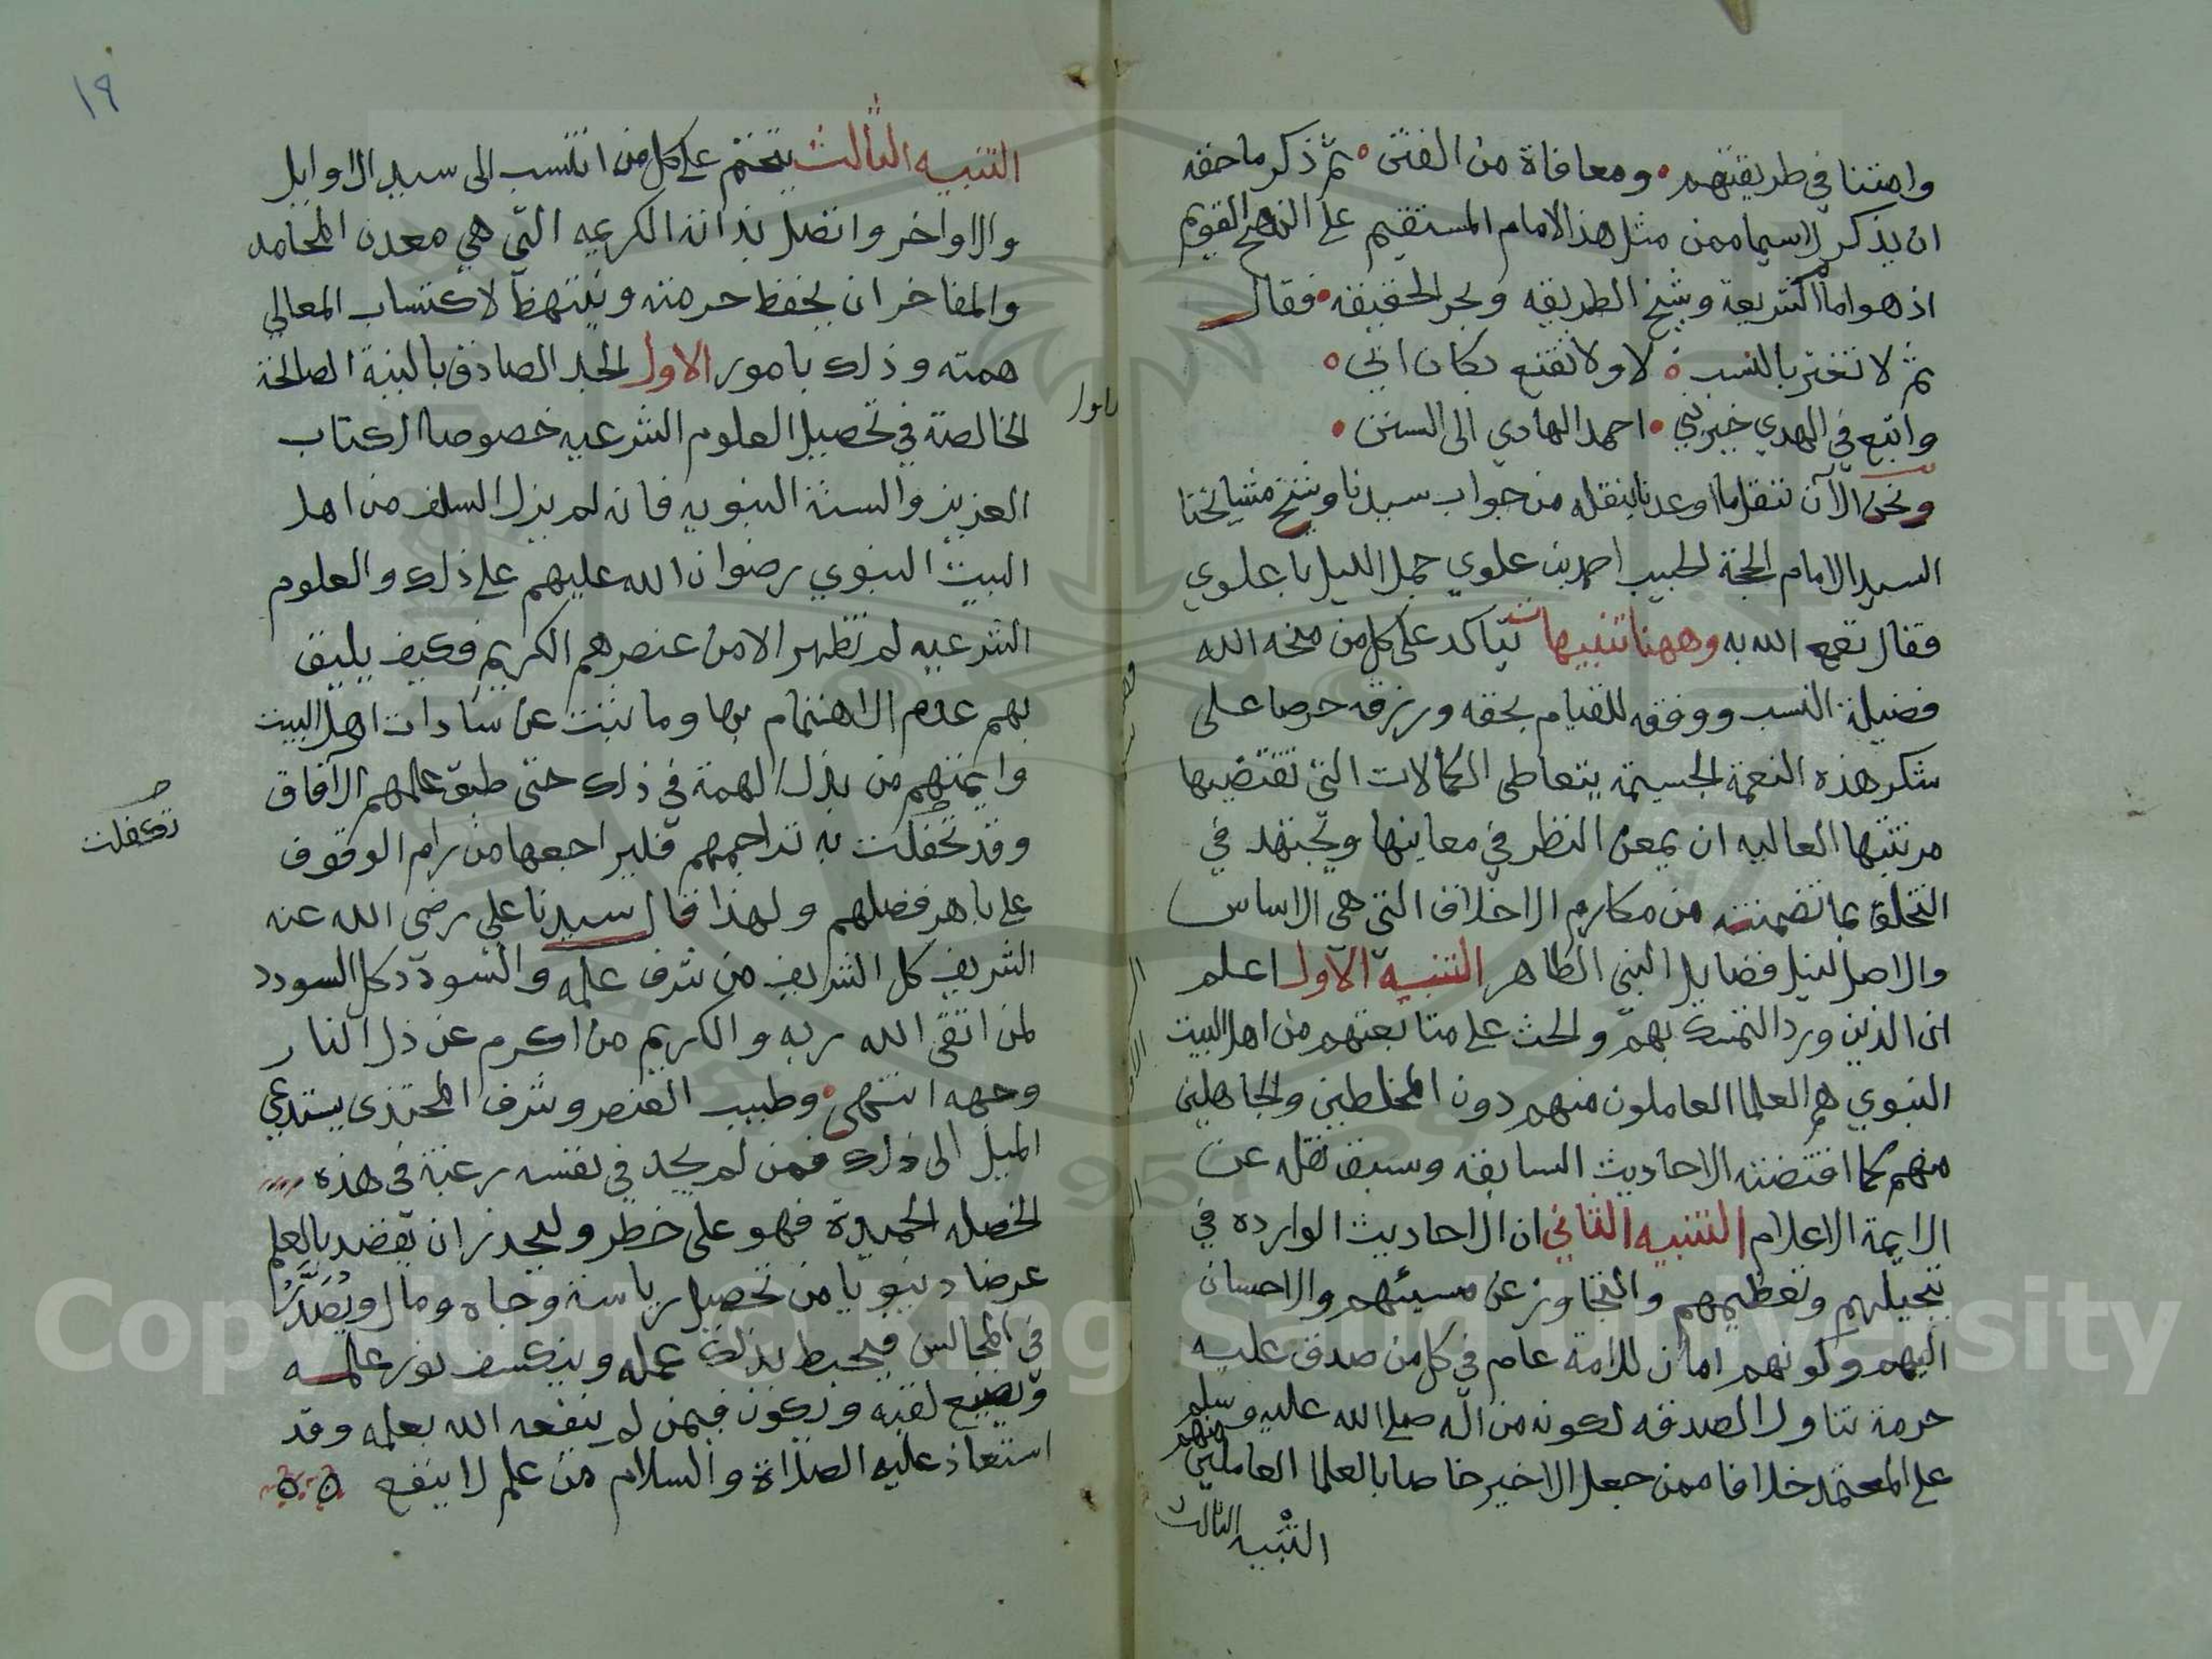 وامتنا في طريقتهم • ومعافاة من الفتن • ثم ذكر ما حقه
ان يذكر لاسيما ممن مثل هذا الامام المستقيم على النهج القويم
اذ هو امام الشريعة وشيخ الطريقه وبحر الحقيقه • فقال
ثم لا تغتر بالنسب • لا ولا تقنع بكان ابي •
واتبع في الهدي خير نبي • احمد الهادي الى السنن •
ونحن الآن ننقل ما اوعدنا بنقله من جواب سيدنا وشيخ مشايخنا
السيد الامام الحجة الحبيب احمد بن علوي جمل الليل باعلوي
فقال نفع الله به وههنا تنبيهات يتاكد على كل من منحه الله
فضيلة النسب ووفقه للقيام بحقه ورزقه حرصا على
شكر هذه النعمة الجسيمة بتعاطى الكمالات التي تقتضيها
مرتبتها العاليه ان يمعن النظر في معانيها ويجتهد في
التخلق بما تضمنته من مكارم الاخلاق التي هي الاساس
والاصل لنيل فضايل النبي الطاهر التنبيه الاول اعلم
ان الذين ورد التمسك بهم والحث على متابعتهم من اهل البيت
النبوي هم العلما العاملون منهم دون المخلطين والجاهلين
منهم كما اقتضته الاحاديث السابقه وسبق نقله عن
الايمة الاعلام التنبيه الثاني ان الاحاديث الوارده في
تبجيلهم وتعظيمهم والتجاوز عن مسيئهم والاحسان
اليهم وكونهم امان للامة عام في كل من صدق عليه
حرمة تناول الصدقه لكونه من اله صلى الله عليه وسلم
على المعتمد خلافا ممن جعل الاخير خاصا بالعلما العاملين منهم
التنبيه الثالث
١٩
التنبيه الثالث يتحتم على كل من انتسب الى سيد الاوايل
والاواخر واتصل بذاته الكريمه التي هي معدن المحامد
والمفاخر ان يحفظ حرمته وينتهظ لاكتساب المعالي
همته وذلك بامور الاول الجد الصادق بالنية الصالحة
الخالصة في تحصيل العلوم الشرعيه خصوصا الكتاب
العزيز والسنة النبويه فانه لم يزل السلف من اهل
البيت النبوي رضوان الله عليهم على ذلك والعلوم
الشرعيه لم تظهر الا من عنصرهم الكريم فكيف يليق
بهم عدم الاهتمام بها وما ثبت عن سادات اهل البيت
وايمتهم من بذل الهمة في ذلك حتى طبق علمهم الآفاق
وقد تحفلت به تراجمهم فليراجعها من رام الوقوف
تكفلت
على باهر فضلهم ولهذا قال سيدنا علي رضى الله عنه
الشريف كل الشريف من شرف علمه والسودد كل السودد
لمن اتقى الله ربه والكريم من اكرم عن ذل النار
وجهه انتهى • وطيب العنصر وشرف المحتذى يستدعي
الميل الى ذلك فمن لم يجد في نفسه رغبة في هذه
الخصله الحميدة فهو على خطر وليحذر ان يقصد بالعلم
عرضا دنيويا من تحصيل رياسة وجاه ومال وتصدر
في المجالس فيحبط بذلك عمله وينكسف نور علمه
ويضيع تعبه وتكون فيمن لم ينفعه الله بعلمه وقد
استعاذ عليه الصلاة والسلام من علم لا ينفع
Copyright © King Saud University